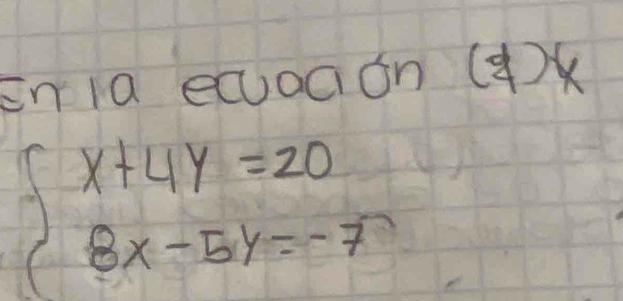 En la ecuación
x+4y=20
8x-5y=-7